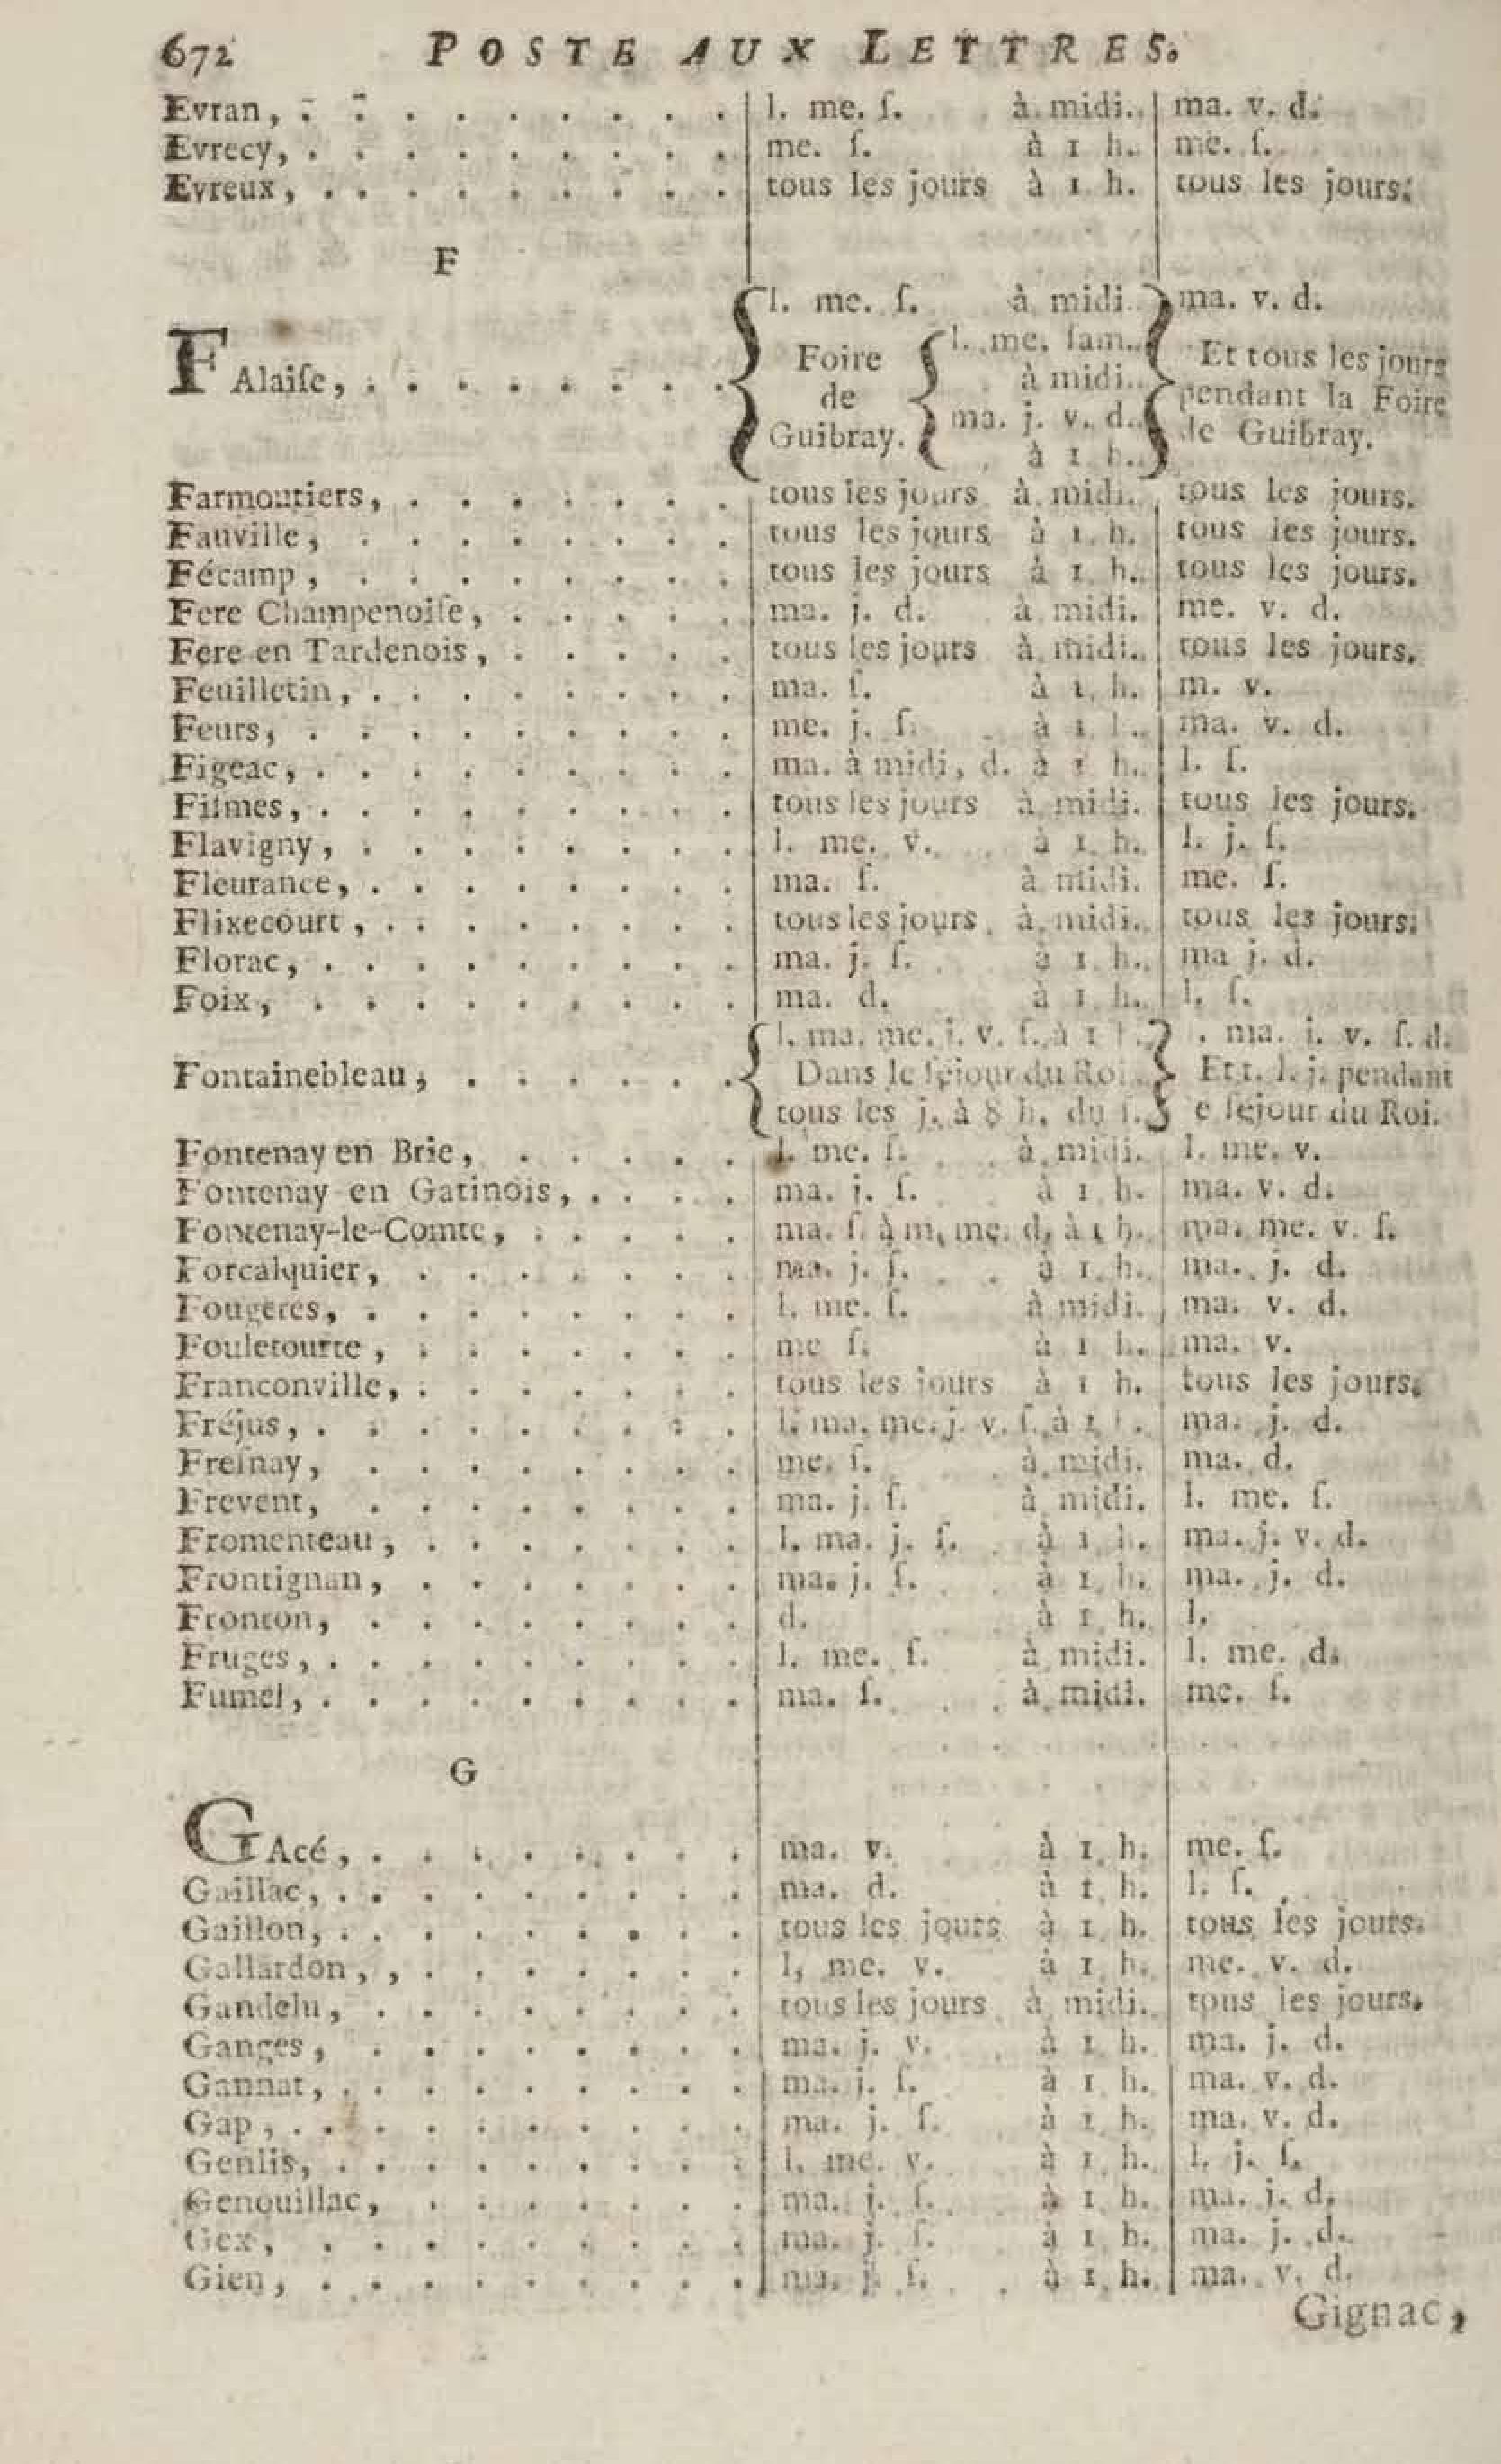 672 POSTE AUX LETTRES.
Evran, . . . . . . . . . l. me. ſ. à midi. ma. v. d.
Evrecy, . . . . . . . . . me. ſ. à 1 h. me. ſ.
Evreux, . . . . . . . . . tous les jours à 1 h. tous les jours.
F
l. me. ſ. à midi. ma. v. d.
FAlaiſe, . . . . . . . . Foire de Guibray. l. me. ſam. à midi. ma. j. v. d. à 1 h. Et tous les jours pendant la Foire de Guibray.
Farmoutiers, . . . . . . . tous les jours à midi. tous les jours.
Fauville, . . . . . . . . tous les jours à 1 h. tous les jours.
Fécamp, . . . . . . . . tous les jours à 1 h. tous les jours.
Fere Champenoiſe, . . . . . ma. j. d. à midi. me. v. d.
Fere en Tardenois, . . . . . tous les jours à midi. tous les jours.
Feuilletin, . . . . . . . . ma. ſ. à 1 h. m. v.
Feurs, . . . . . . . . . me. j. ſ. à 1 h. ma. v. d.
Figeac, . . . . . . . . . ma. à midi, d. à 1 h. l. ſ.
Fiſmes, . . . . . . . . . tous les jours à midi. tous les jours.
Flavigny, . . . . . . . . l. me. v. à 1 h. l. j. ſ.
Fleurance, . . . . . . . . ma. ſ. à midi. me. ſ.
Flixecourt, . . . . . . . . tous les jours à midi. tous les jours.
Florac, . . . . . . . . . ma. j. ſ. à 1 h. ma j. d.
Foix, . . . . . . . . . ma. d. à 1 h. l. ſ.
l. ma. me. j. v. ſ. à 1 h. . ma. j. v. ſ. d.
Fontainebleau, . . . . . . Dans le ſéjour du Roi Et t. l. j. pendant
tous les j. à 8 h. du ſ. e ſéjour du Roi.
Fontenay en Brie, . . . . . l. me. ſ. à midi. l. me. v.
Fontenay en Gatinois, . . . . ma. j. ſ. à 1 h. ma. v. d.
Fontenay-le-Comte, . . . . . ma. ſ. à m. me. d. à 1 h. ma. me. v. ſ.
Forcalquier, . . . . . . . ma. j. ſ. à 1 h. ma. j. d.
Fougeres, . . . . . . . . l. me. ſ. à midi. ma. v. d.
Fouletourte, . . . . . . . me ſ. à 1 h. ma. v.
Franconville, . . . . . . . tous les jours à 1 h. tous les jours.
Fréjus, . . . . . . . . . l. ma. me. j. v. ſ. à 1 h. ma. j. d.
Freſnay, . . . . . . . . me. ſ. à midi. ma. d.
Frevent, . . . . . . . . ma. j. ſ. à midi. l. me. ſ.
Fromenteau, . . . . . . . l. ma. j. ſ. à 1 h. ma. j. v. d.
Frontignan, . . . . . . . ma. j. ſ. à 1 h. ma. j. d.
Fronton, . . . . . . . . d. à 1 h. l.
Fruges, . . . . . . . . . l. me. ſ. à midi. l. me. d.
Fumel, . . . . . . . . . ma. ſ. à midi. me. ſ.
G
GAcé, . . . . . . . . ma. v. à 1 h. me. ſ.
Gaillac, . . . . . . . . . ma. d. à 1 h. l. ſ.
Gaillon, . . . . . . . . . tous les jours à 1 h. tous les jours.
Gallardon, , . . . . . . . l, me. v. à 1 h. me. v. d.
Gandelu, . . . . . . . . tous les jours à midi. tous les jours.
Ganges, . . . . . . . . ma. j. v. à 1 h. ma. j. d.
Gannat, . . . . . . . . . ma. j. ſ. à 1 h. ma. v. d.
Gap, . . . . . . . . . . ma. j. ſ. à 1 h. ma. v. d.
Genlis, . . . . . . . . . l. me. v. à 1 h. l. j. ſ.
Genouillac, . . . . . . . ma. j. ſ. à 1 h. ma. j. d.
Gex, . . . . . . . . . ma. j. ſ. à 1 h. ma. j. d.
Gien, . . . . . . . . . ma. j. ſ. à 1 h. ma. v. d.
Gignac,